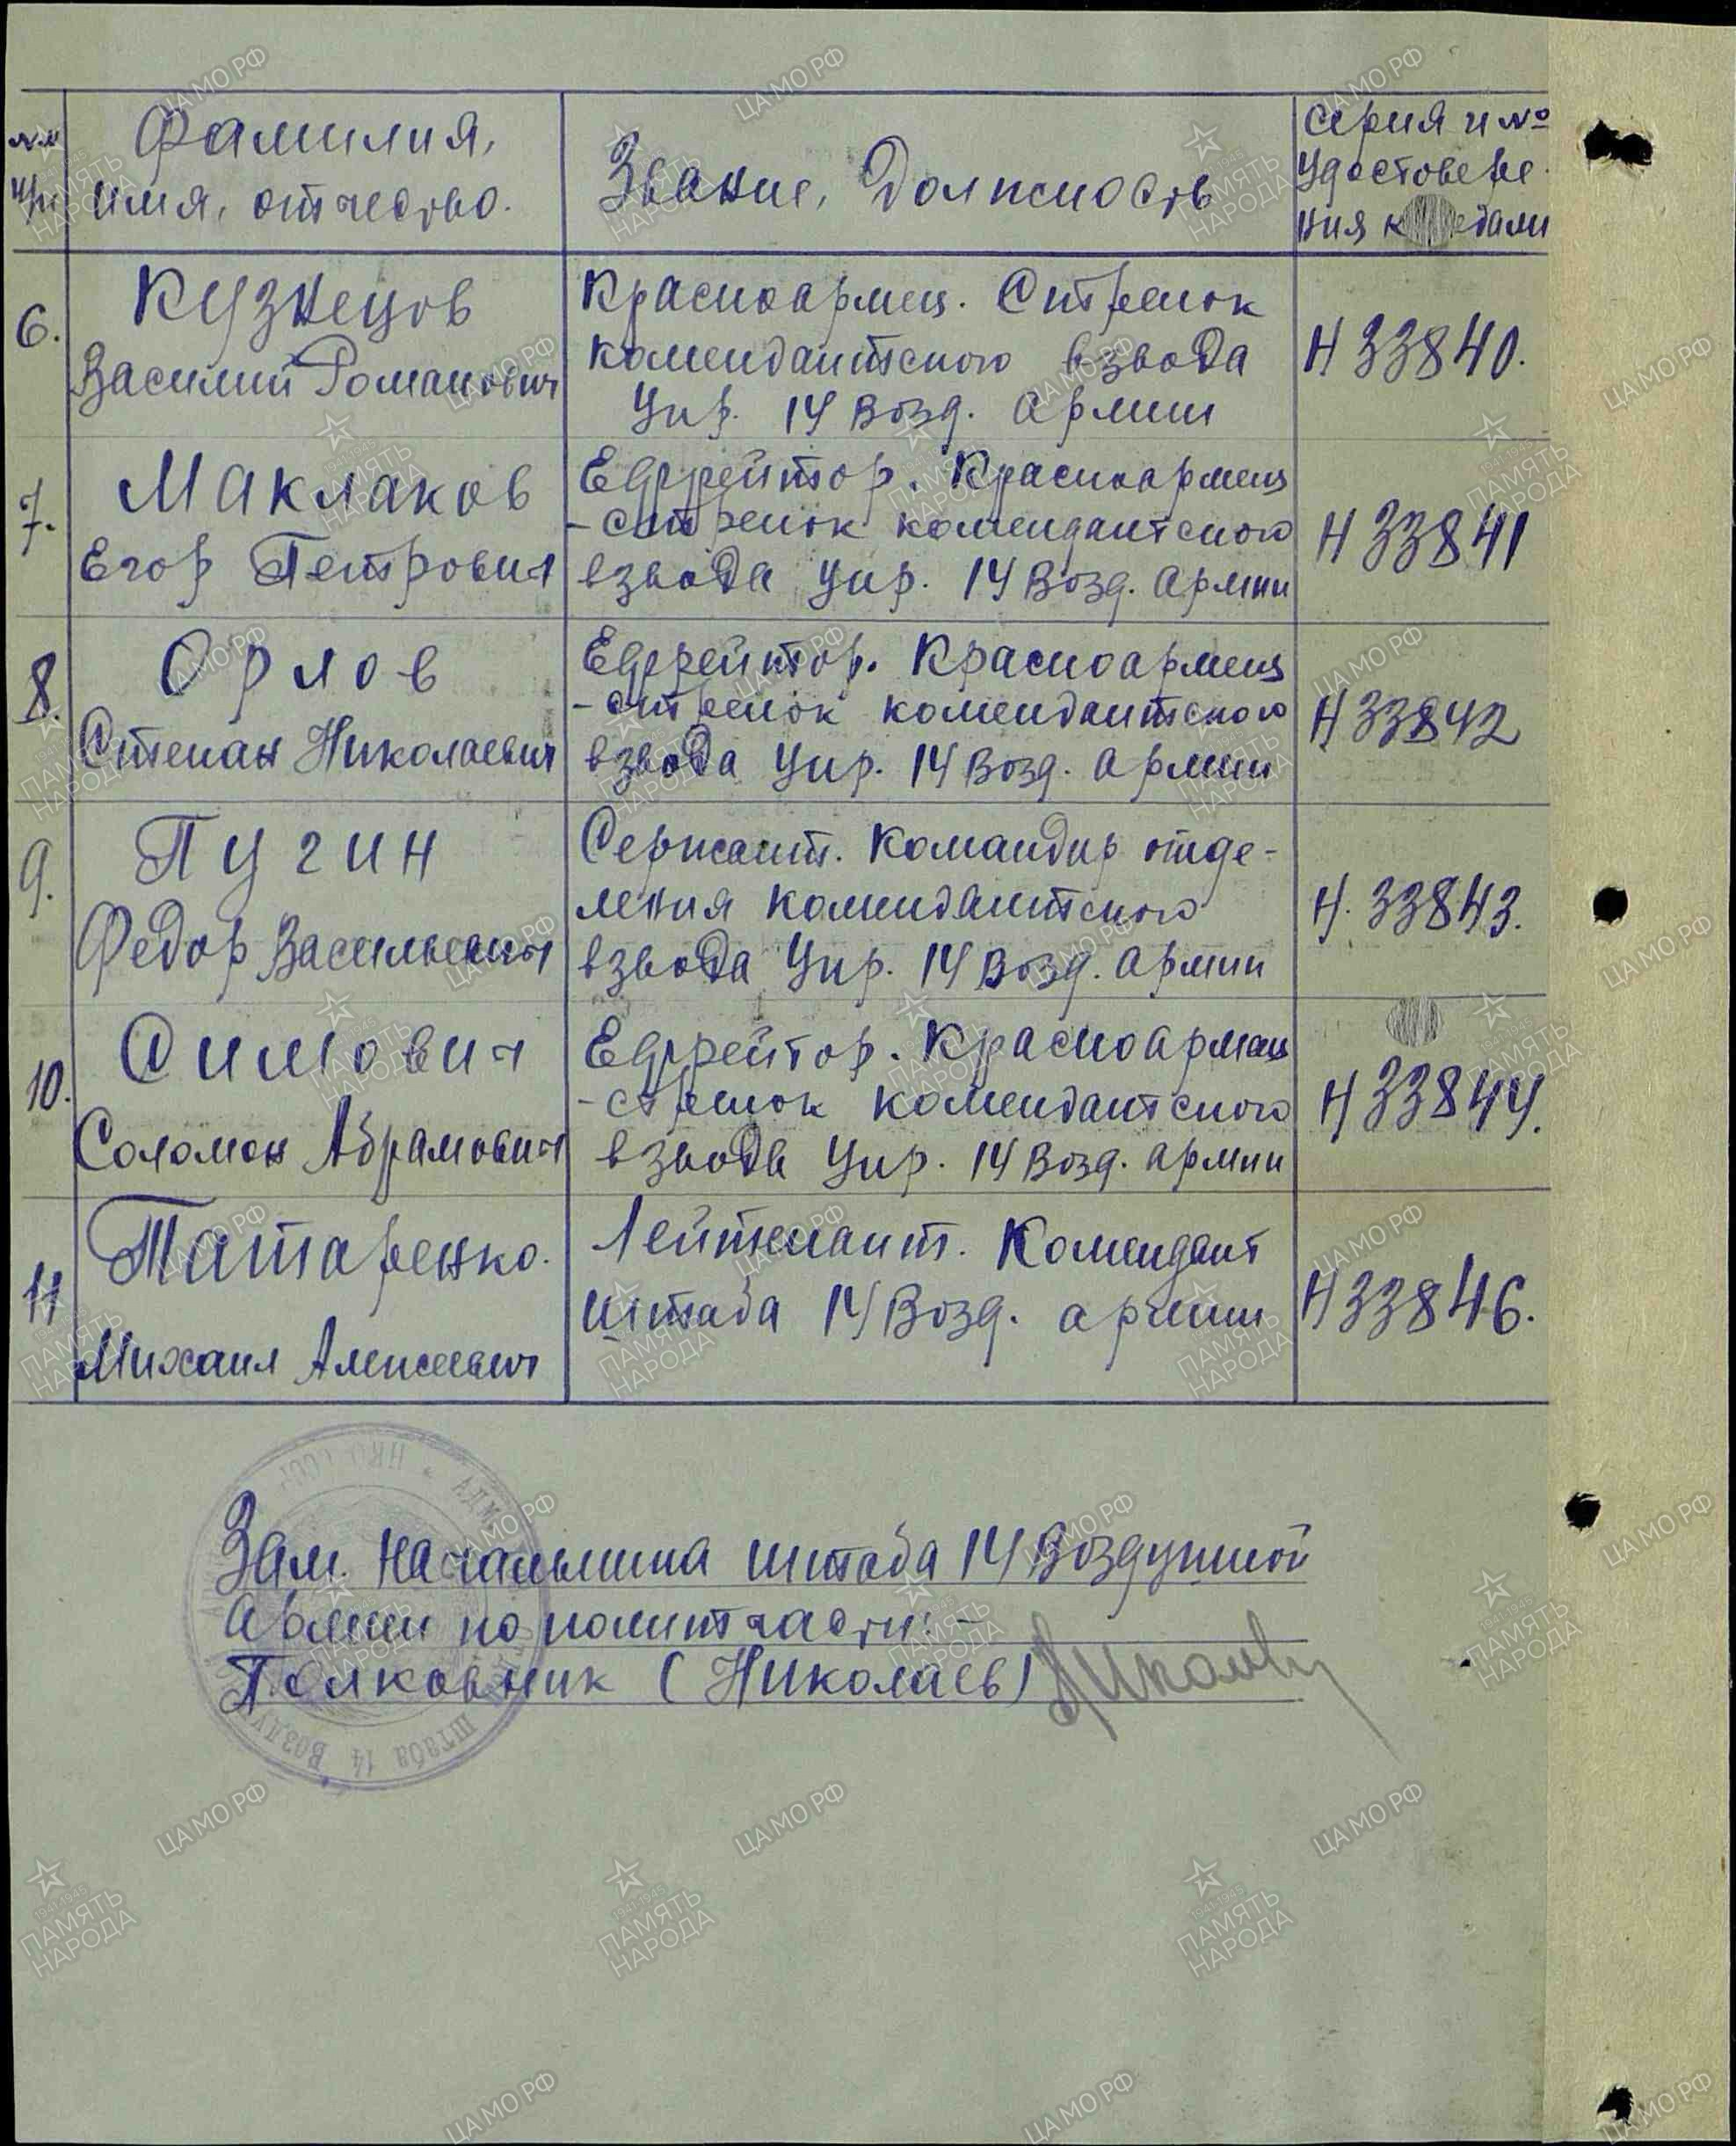 №№ п/п
Фамилия,
имя, отчество.
Звание, Должность
Серия и №
удостовере-
ния к медали
6.
Кузнецов
Василий Романович
Красноармец. Стрелок
комендантского взвода
Упр. 14 Возд. Армии
Н 33840.
7.
Маклаков
Егор Петрович
Ефрейтор. Красноармец
- стрелок комендантского
взвода Упр. 14 Возд. Армии
Н 33841
8.
Орлов
Степан Николаевич
Ефрейтор. Красноармец
- стрелок комендантского
взвода Упр. 14 Возд. Армии
Н 33842
9.
Пугин
Федор Васильевич
Сержант. Командир отде-
ления комендантского
взвода Упр. 14 Возд. Армии
Н. 33843.
10.
Симович
Соломон Абрамович
Ефрейтор. Красноармец
- стрелок комендантского
взвода Упр. 14 Возд. Армии
Н 33844.
11
Татаренко.
Михаил Алексеевич
Лейтенант. Комендант
штаба 14 Возд. армии
Н 33846.
Зам. Начальника штаба 14 Воздушной
Армии по политчасти: -
Полковник (Николаев)
НКО СССР
штаба 14 Возду
ЦАМО РФ
1941-1945
ПАМЯТЬ
НАРОДА